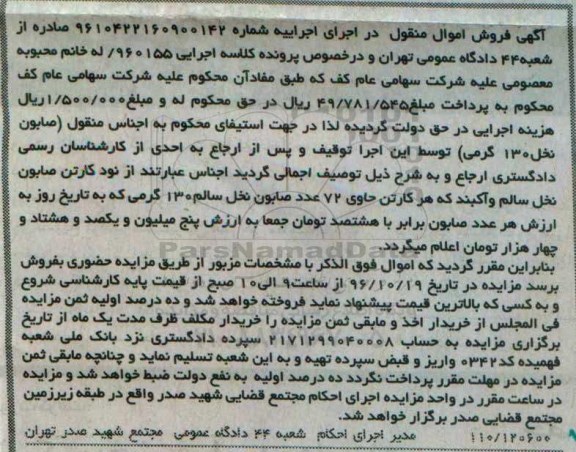 آگهی فروش اموال منقول در اجرای اجراییه شماره ۹۶۱۰۴۲۲۱۶۰۹۰۰۱۴۲ صادره از
شعبه۴۴ دادگاه عمومی تهران و درخصوص پرونده کلاسه اجرایی ۹۶۰۱۵۵/ له خانم محبوبه
معصومی علیه شرکت سهامی عام کف که طبق مفادآن محکوم علیه شرکت سهامی عام کف
محکوم به پرداخت مبلغ۴۹/۷۸۱/۵۴۵ ریال در حق محکوم له و مبلغ۱/۵۰۰/۰۰۰ریال
هزینه اجرایی در حق دولت گردیده لذا در جهت استیفای محکوم به اجناس منقول (صابون
نخل۱۳۰ گرمی) توسط این اجرا توقیف و پس از ارجاع به احدی از کارشناسان رسمی
دادگستری ارجاع و به شرح ذیل توصیف اجمالی گردید اجناس عبارتند از نود کارتن صابون
نخل سالم وآکبند که هر کارتن حاوی ۷۲ عدد صابون نخل سالم۱۳۰ گرمی که به تاریخ روز به
ارزش هر عدد صابون برابر با هشتصد تومان جمعا به ارزش پنج میلیون و یکصد و هشتاد و
چهار هزار تومان اعلام میگردد.
ParsNamadData
بنابراین مقرر گردید که اموال فوق الذکر با مشخصات مزبور از طریق مزایده حضوری بفروش
برسد مزایده در تاریخ ۹۶/۱۰/۱۹ از ساعت۹ الی۱۰ صبح از قیمت پایه کارشناسی شروع
و به کسی که بالاترین قیمت پیشنهاد نماید فروخته خواهد شد و ده درصد اولیه ثمن مزایده
فی المجلس از خریدار اخذ و مابقی ثمن مزایده را خریدار مکلف ظرف مدت یک ماه از تاریخ
برگزاری مزایده به حساب ۲۱۷۱۲۹۹۰۴۰۰۰۸ سپرده دادگستری نزد بانک ملی شعبه
فهمیده کد۰۳۴۲ واریز و قبض سپرده تهیه و به این شعبه تسلیم نماید و چنانچه مابقی ثمن
مزایده در مهلت مقرر پرداخت نگردد ده درصد اولیه به نفع دولت ضبط خواهد شد و مزایده
در ساعت مقرر در واحد مزایده اجرای احکام مجتمع قضایی شهید صدر واقع در طبقه زیرزمین
مجتمع قضایی صدر برگزار خواهد شد.
۱۱۰/۱۲۰۶۰۰ مدیر اجرای احکام شعبه ۴۴ دادگاه عمومی مجتمع شهید صدر تهران